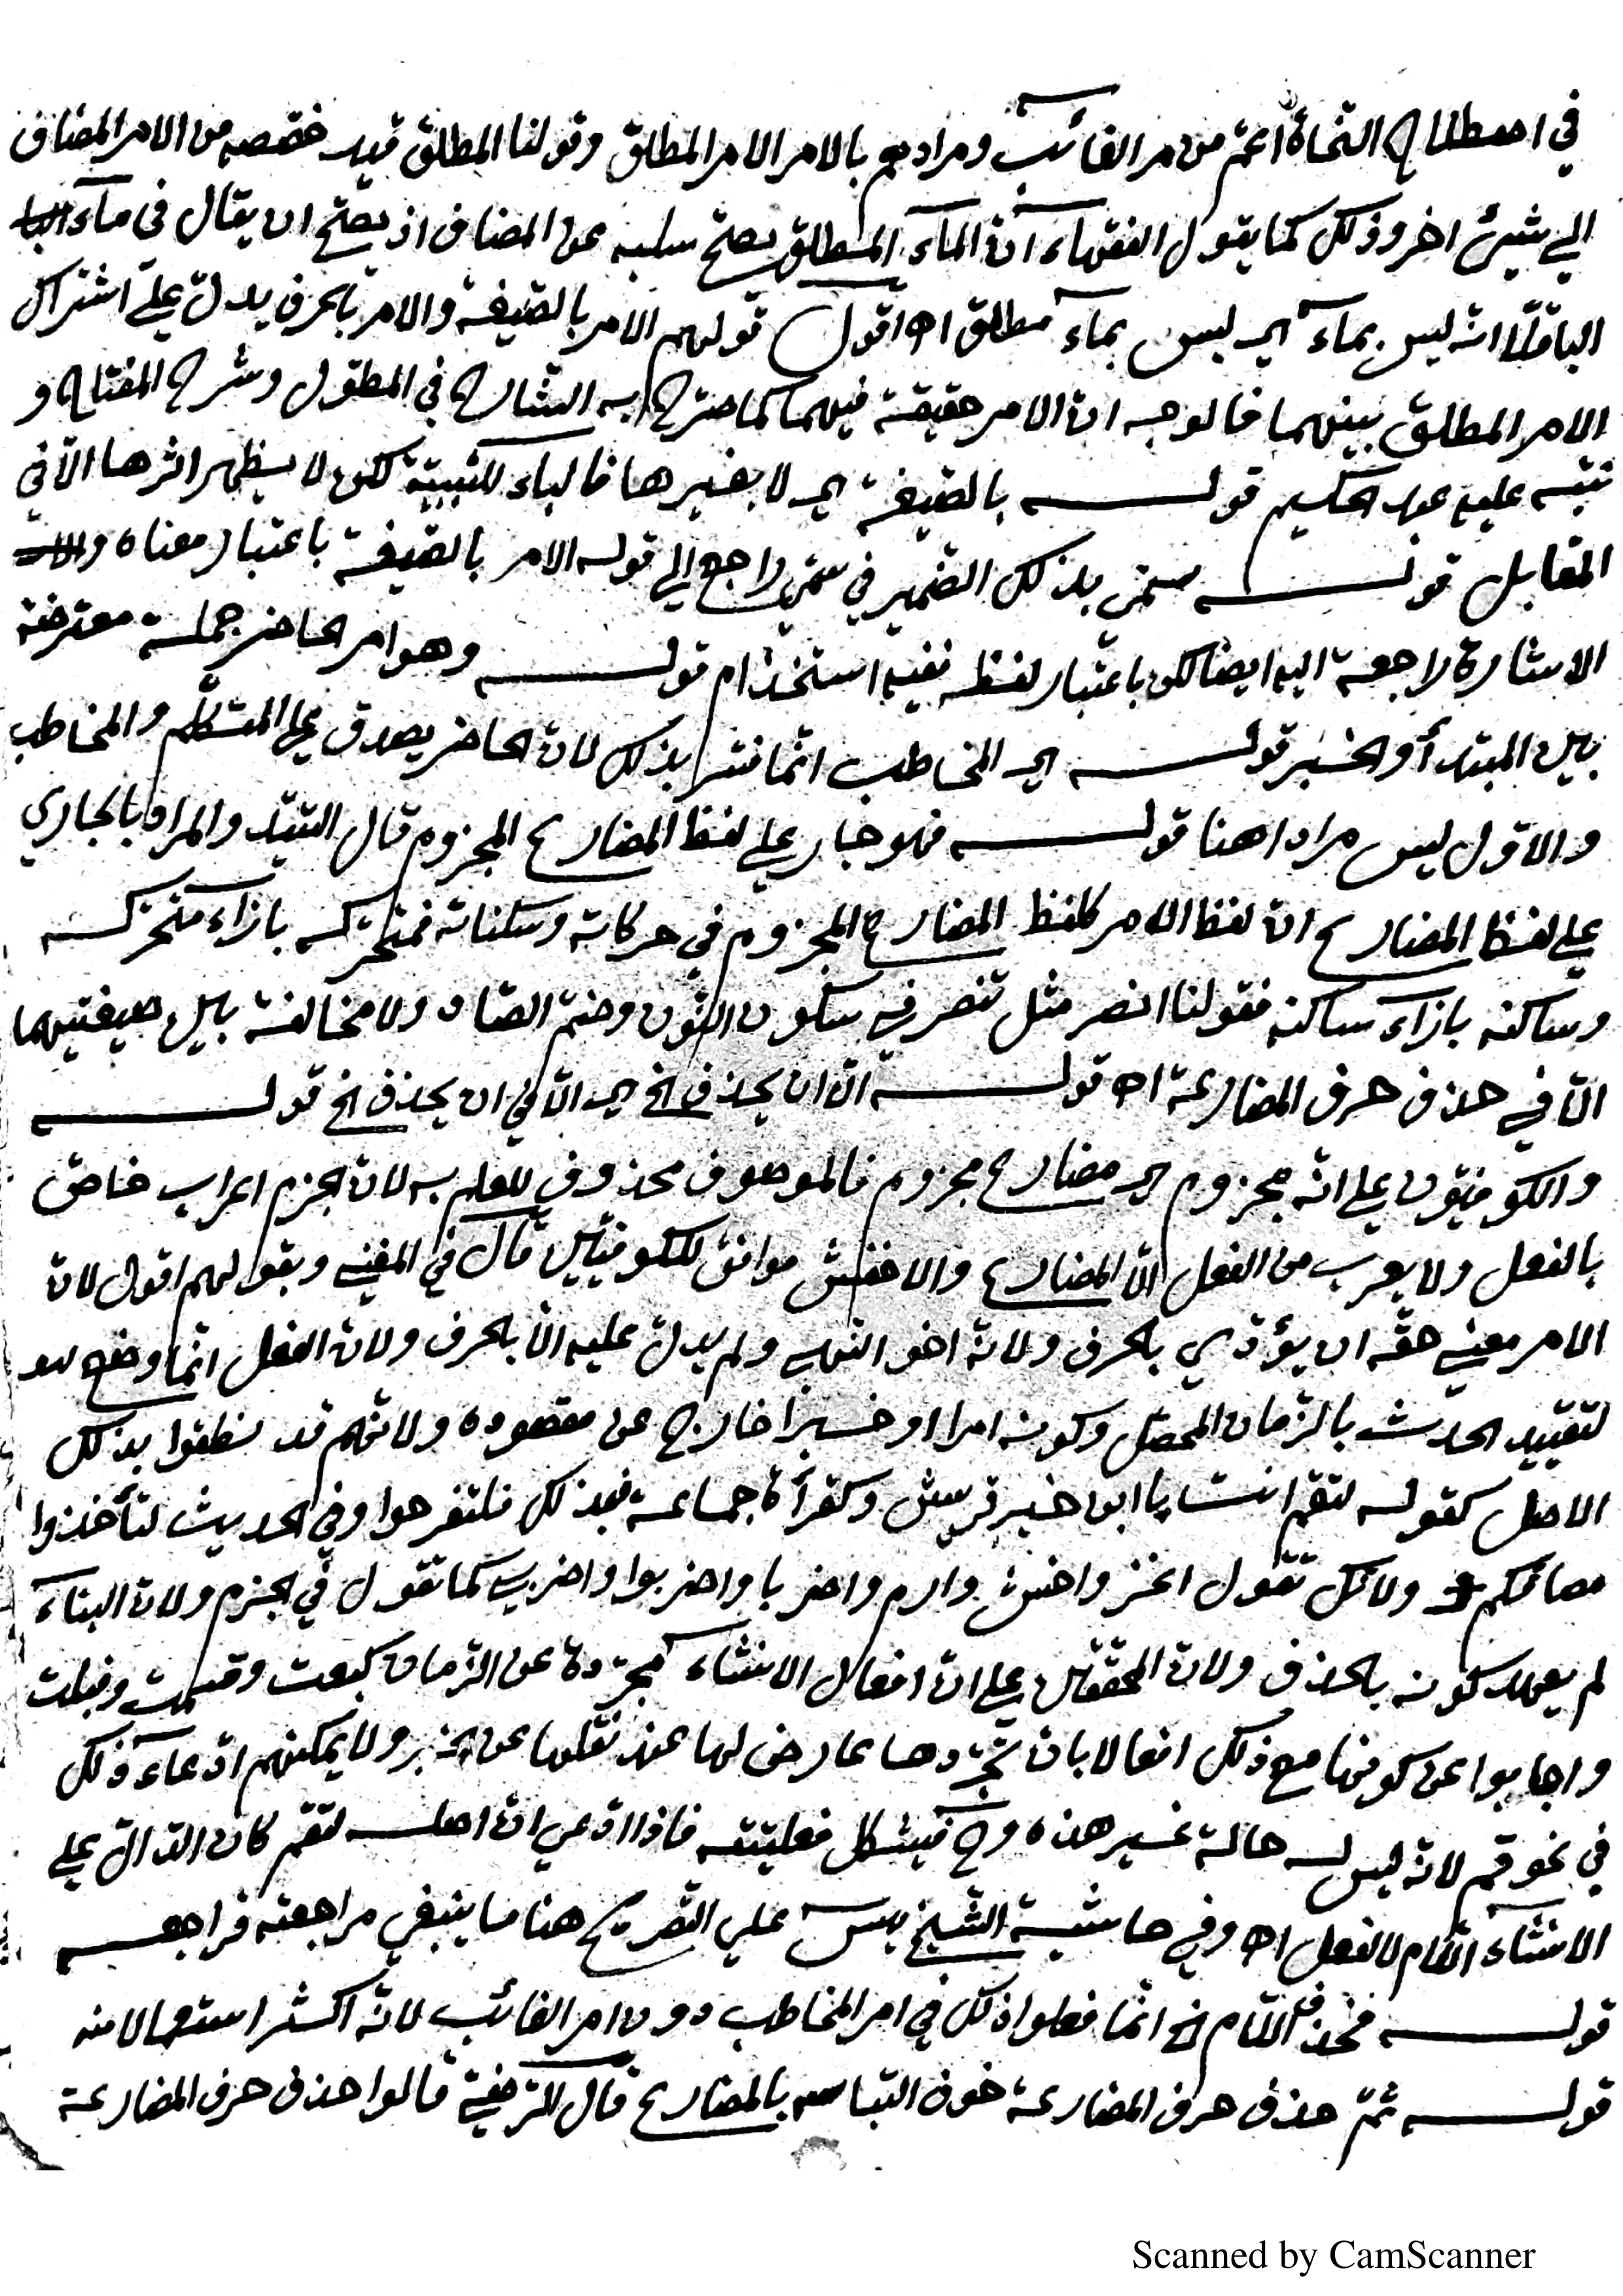 في اصطلاح النحاة اعمّ من مر الغائب ومرادهم بالامر الامر المطلق وقولنا المطلق قيد خصصه من الامر المضاف
الي شيئ اخر وذلك كما يقول الفقهاء انّ المآء المطلق يصحّ سلبه عن المضاف اذ يصحّ ان يقال في مآء
الباقلّا انه ليس بمآء اي ليس بمآء مطلق اه اقول قولهم الامر بالصّيغة والامر بالحرف يدلّ علي اشتراك
الامر المطلق بينهما فالوجه انّ الامر حقيقة فيهما كما صرّح به الشّارح في المطوّل وشرح المفتاح و
نبّه عليه عبد الحكيم قوله بالصّيغة اي لا بغيرها فالباء للسّببيّة لكن لا يظهر اثرها الّا في
المقابل قوله سمّي بذلك الضّمير في سمّي راجع الي قوله الامر بالصّيغة باعتبار معناه و
الاشارة راجعة اليه ايضا لكن باعتبار لفظه ففيه استخذام قوله وهو امر الحاضر جملة معترضة
بين المبتدأ والخبر قوله اي المخاطب انّما فسّر بذلك لانّ الحاضر يصدق علي المتكلّم والمخاطب
والاوّل ليس مرادا هنا قوله فهو جار علي لفظ المضارع المجزوم قال السّيّد والمراد بالجاري
علي لفظ المضارع انّ لفظ الامر كلفظ المضارع المجزوم في حركاته وسكناته فمتحرّكه بازآء متحرّكه
وساكنه بازآء ساكنه فقولنا انصر مثل تنصر في سكون النّون وضمّ الصّاد ولا مخالفة بين صيغتيهما
الّا في حذف حرف المضارعة اه قوله الّا ان يحذف الخ اي الّا في ان يحذف الخ قوله
والكوفيّون علي انّه مجزوم اي مضارع مجزوم فالموصوف محذوف للعلم به لانّ الجزم اعراب خاصّ
بالفعل ولا يعرب من الفعل الّا المضارع والاخفش موافق للكوفيّين قال في المغني وبقولهم اقول لانّ
الامر معني حقّه ان يؤدّي بالحرف ولانّه اخو النّهي ولم يدلّ عليه الّا بالحرف ولانّ الفعل انّما وضع
لتقييد الحدث بالزّمان المحصّل وكونه امرا او خبرا خارج عن مقصوده ولانّهم قد نطقوا بذلك
الاصل كقوله لتقم انت يا ابن خير قريش وكقرأة جماعة فبذلك فلتفرحوا وفي الحديث لتأخذوا
مصافّكم ولانّك تقول اغز واخش وارم واضربا واضربوا واضربي كما تقول في الجزم ولانّ البنآء
لم يعهد كونه بالحذف ولانّ المحققين علي انّ افعال الانشآء مجرّدة عن الزّمان كبعت وقسمت وقبلت
واجابوا عن كونها مع ذلك افعالا بانّ تجرّدها عارض لها عند نقلها عن الخبر ولا يمكنهم ادّعآء ذلك
في نحو قم لانّه ليس له حالة غير هذه وح فيشكل فعليّته فاذا ادّعي انّ اصله لتقم كان الدّالّ علي
الانشآء اللّام لا الفعل اه وفي حاشية الشّيخ يس علي التّصريح هنا ما ينبغي مراجعته فراجعه
قوله فحذف اللّام الخ انّما فعلوا ذلك في امر المخاطب دون امر الغائب لانّه اكثر استعمالا منه
قوله ثمّ حذف حرف المضارعة خوف التباسه بالمضارع قال الرّضيّ قالوا حذف حرف المضارعة
Scanned by CamScanner